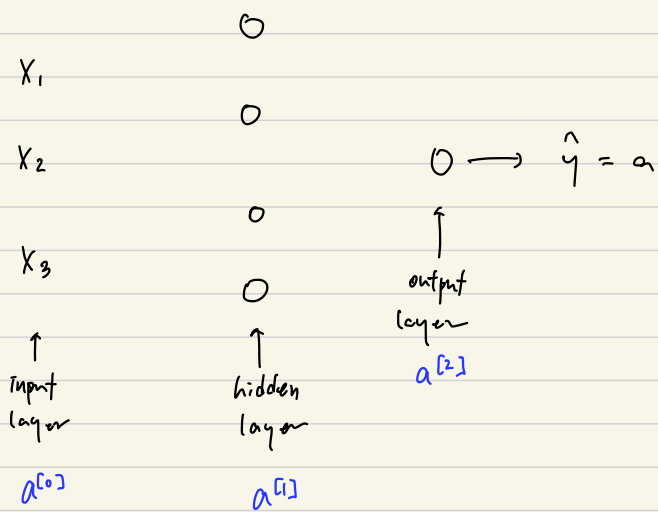 X₁
X₂
X₃
ŷ = a
input
layer
a^[0]
hidden
layer
a^[1]
output
layer
a^[2]